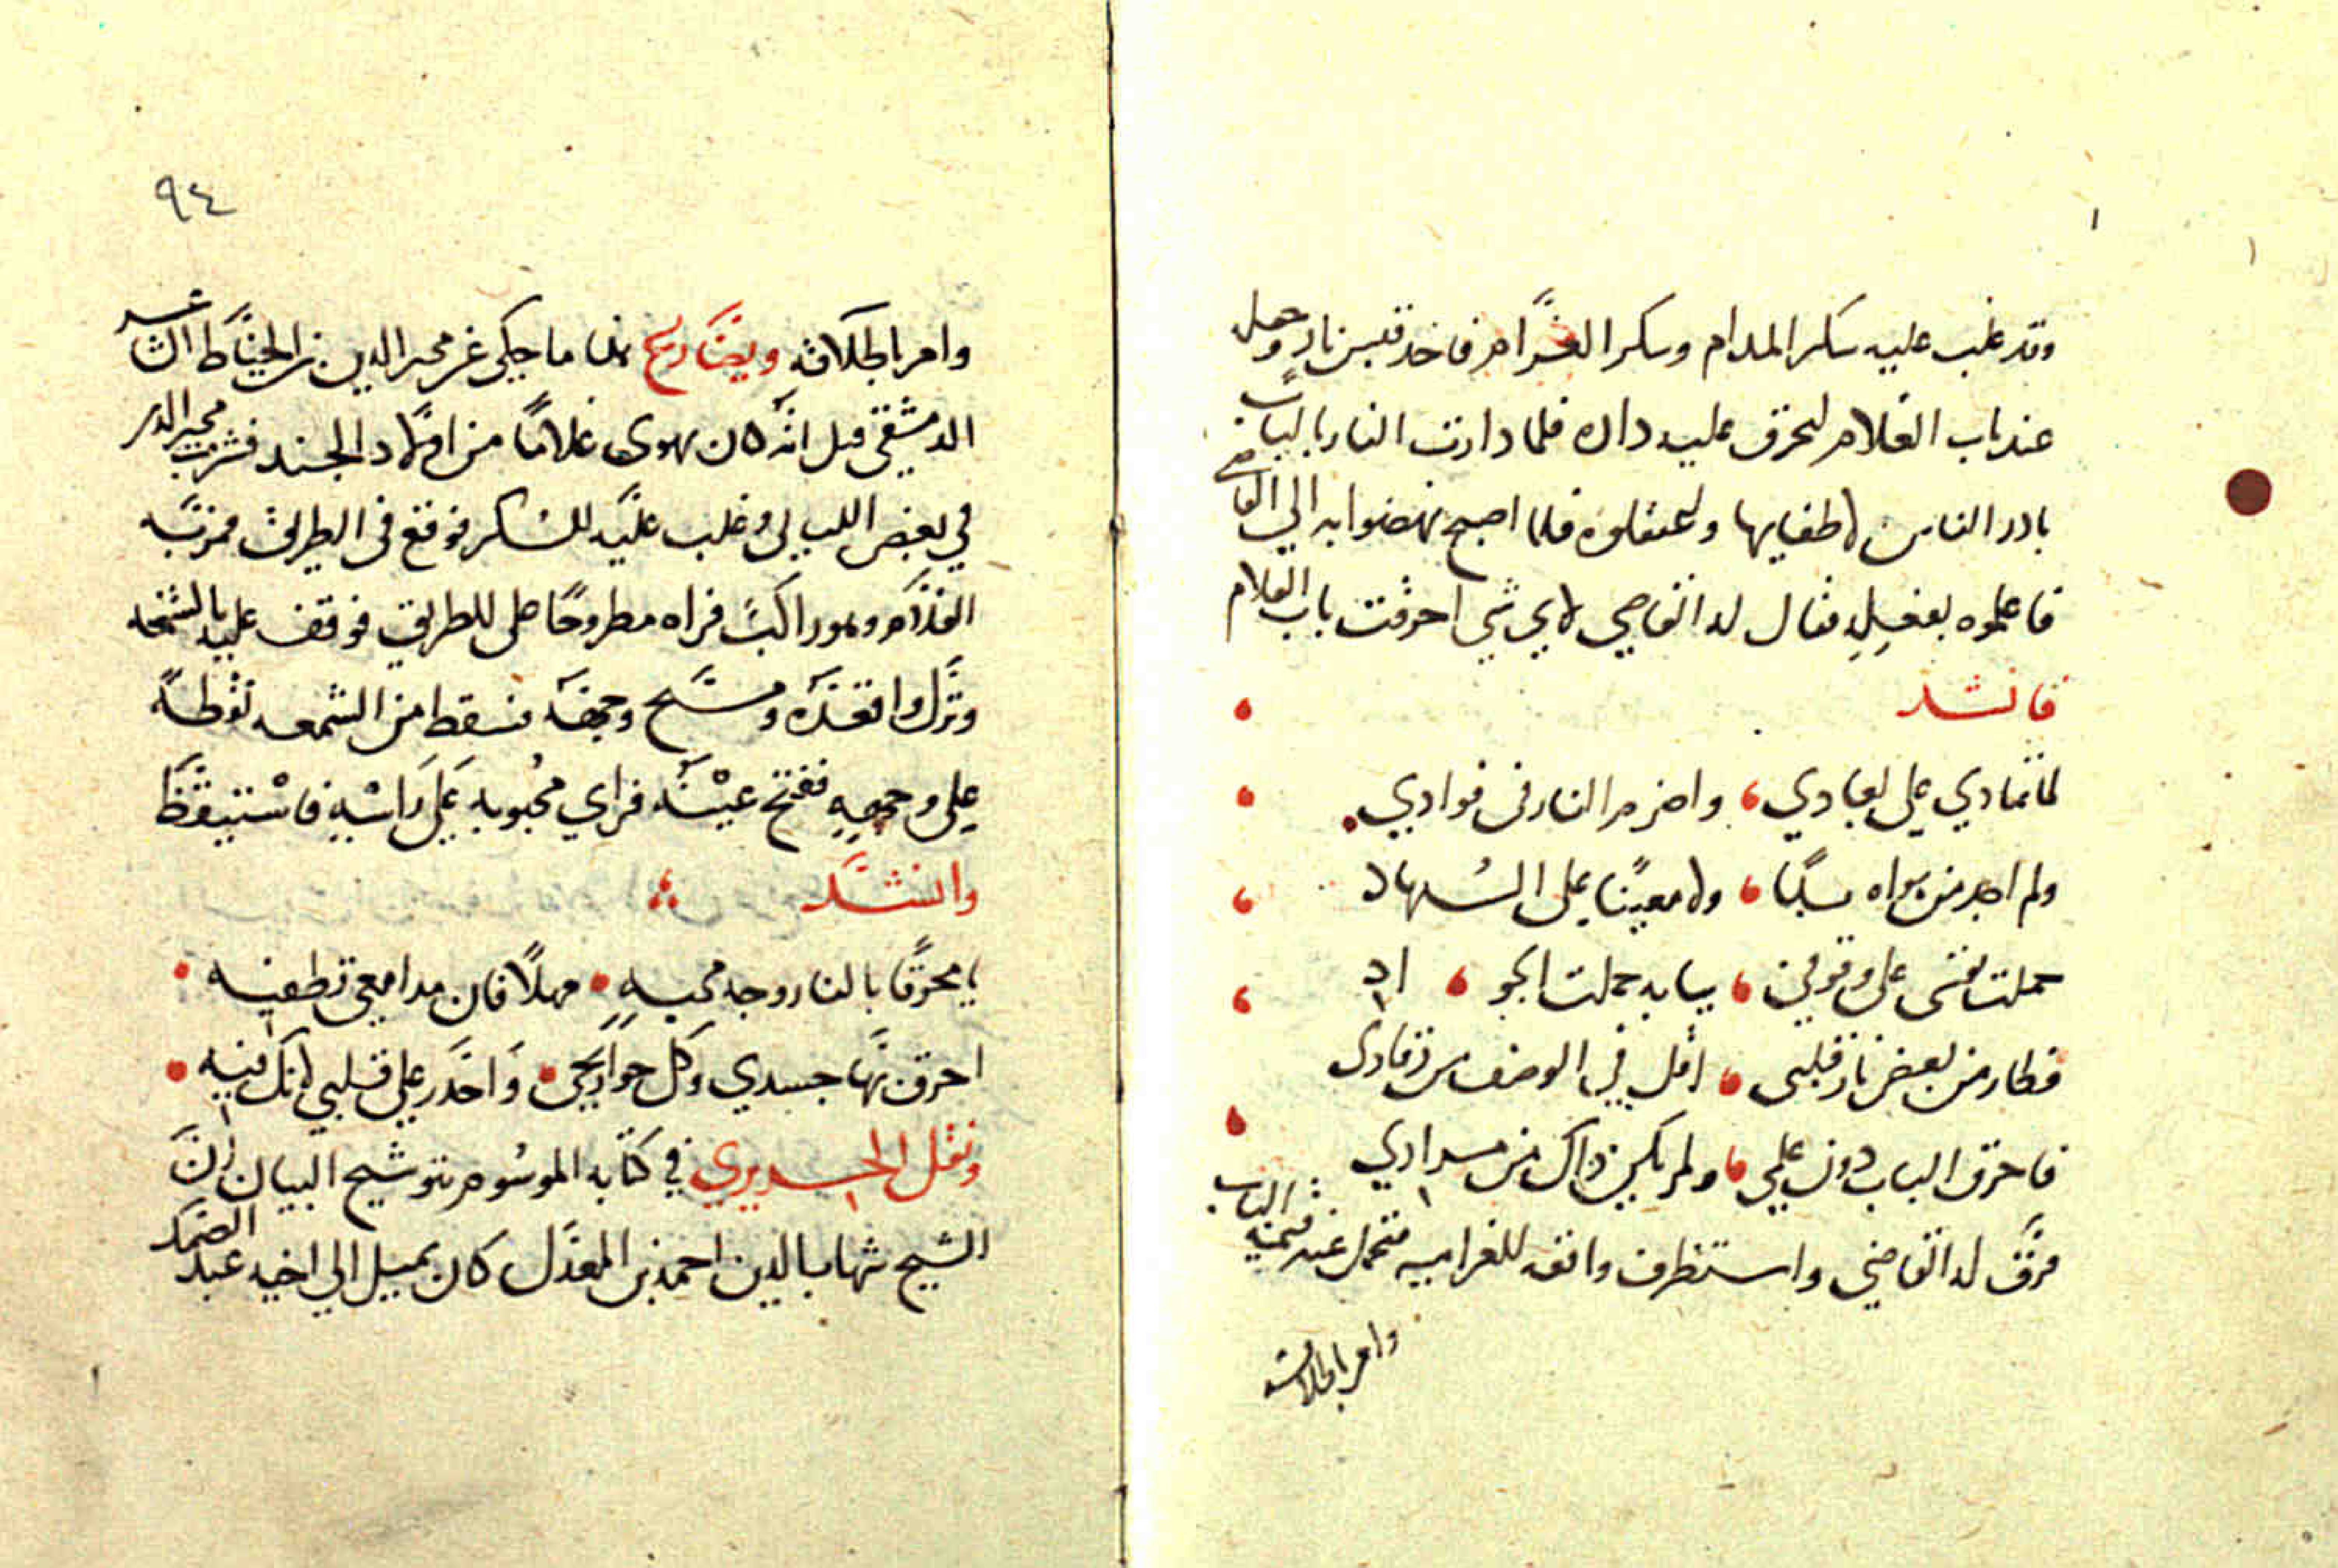 وقد غلب عليه سكر المدام وسكر الغرام فاخذ قبس نار وجعل
عند باب الغلام ليحرق عليه داره فلما دارت النار بالباب
بادر الناس لاطفايها واعتقلوه فلما اصبح نهضوا به الي القاضي
فاعلموه بفعله فقال له القاضي لاي شي احرقت باب الغلام
فانشد
لما تمادي علي بعادي ، واضرم النار في فوادي
ولم اجد من هواه بدا ، ولا معينا على السهاد
حملت نفسى على وقوفي ، ببابه حملت الجو ، اد
فطار من بعض نار قلبى ، اقل في الوصف من زنادى
فاحرق الباب دون علمي ، ولم يكن ذاك من مرادي
فرق له القاضي واستظرف واقعه الغراميه فتحمل عنه قيمة الباب
وامر باطلاقه
٩٤
وامر باطلاقه ويضارع هذا ما حكي عن مجير الدين بن الخياط الشاعر
الدمشقي قيل انه كان يهوى غلاما من اولاد الجند فشرب مجير الدين
في بعض الليالي وغلب عليه السكر فوقع في الطريق فمر به
الغلام وهو راكب فراه مطروحا على الطريق فوقف عليه بالشمعه
ونزل واقعده ومسح وجهه فسقط من الشمعه نقطة
علي وجهه ففتح عينه فراي محبوبه على راسه فاستيقظ
وانشد
يا محرقا بالنار وجه محبه • مهلا فان مدامعي تطفيه •
احرق بها جسدي وكل جوارحي • واحذر علي قلبي لانك فيه •
ونقل الحريري في كتابه الموسوم بتوشيح البيان ان
الشيخ شهاب الدين احمد بن المعذل كان يميل الي اخيه عبد الصمد